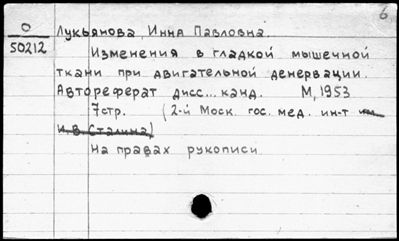 6
О
50212
Лукьянова, Инна Павловна.
Изменения в гладкой мышечной
ткани при двигательной денервации.
Автореферат дисс... канд. М, 1953
7стр. (2-й Моск. гос. мед. ин-т им
И.В. Сталина)
На правах рукописи